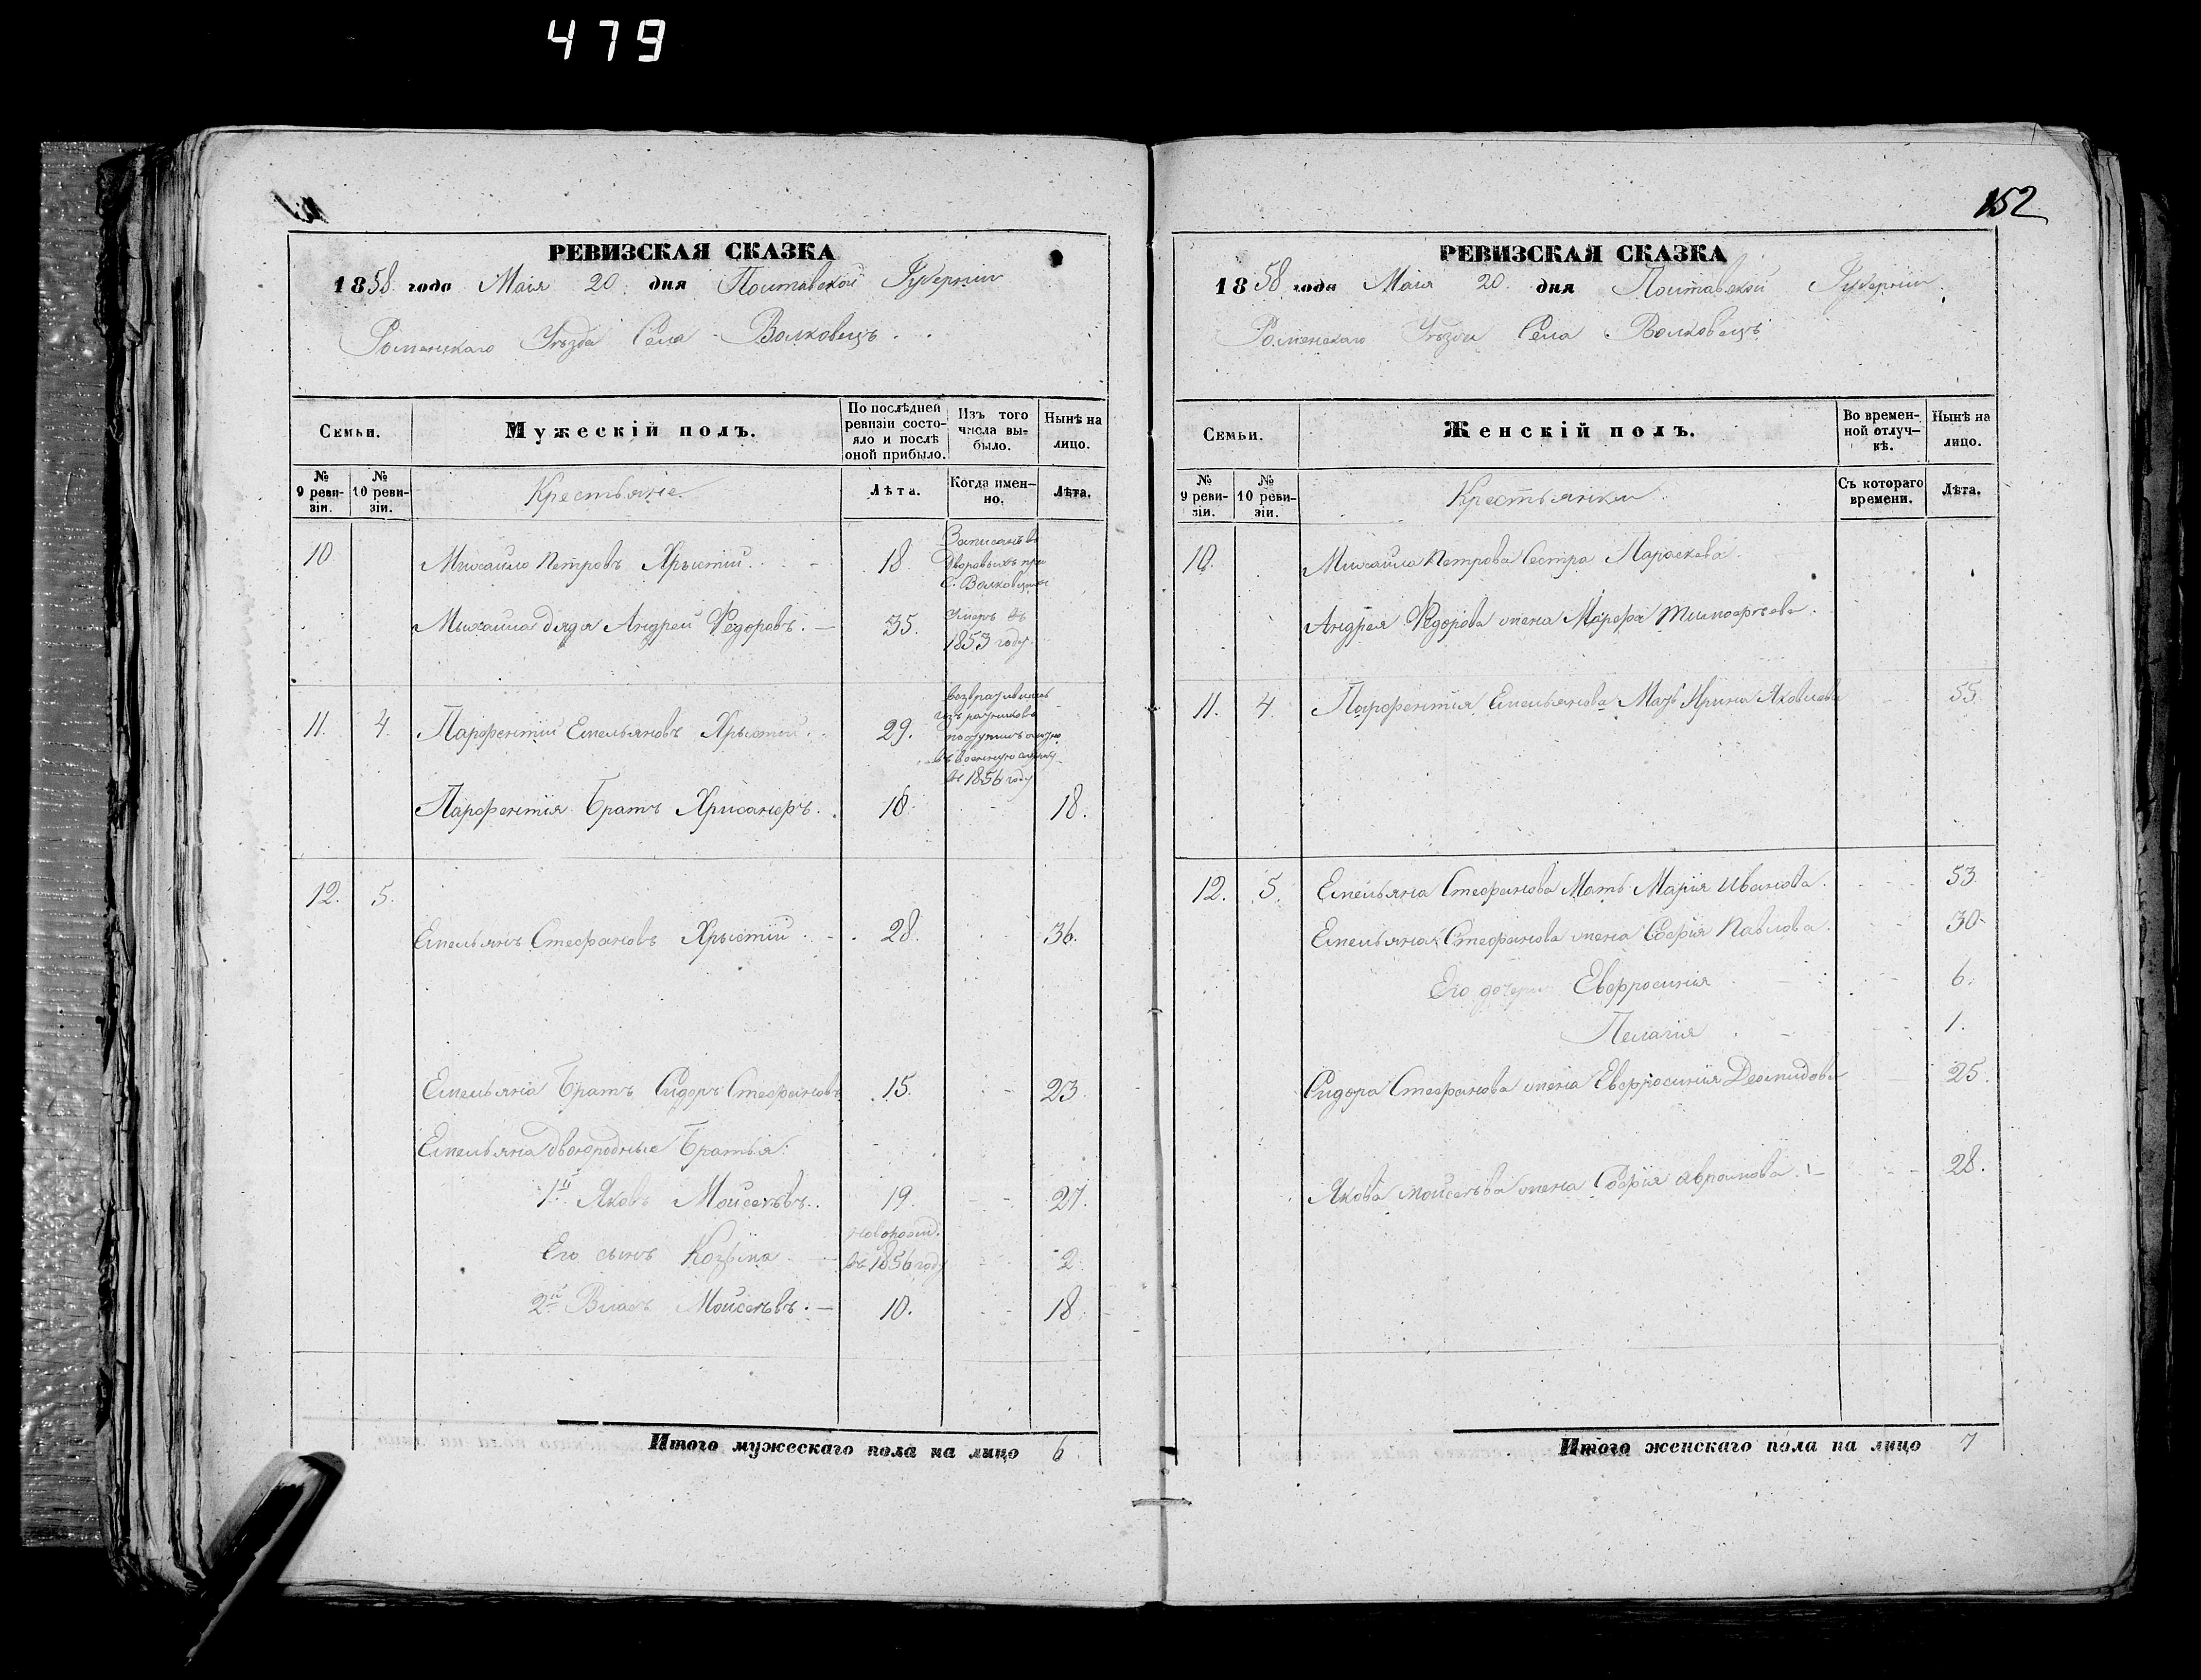 479
РЕВИЗСКАЯ СКАЗКА
1858 года Маія 20 дня Полтавской Губерніи
Роменскаго Уѣзда Села Волковецъ.
Семьи.
Мужескій полъ.
По послѣдней ревизіи состояло и послѣ оной прибыло.
Изъ того числа выбыло.
Нынѣ на лицо.
№ 9 ревизіи.
№ 10 ревизіи.
Крестьяне.
Лѣта.
Когда именно.
Лѣта.
10 Михайло Петровъ Хрыстій. 18. Записанъ въ Дворовыхъ при С. Волковцахъ
Михаила дядя Андрей Федоровъ. — 35. Умеръ въ 1853 году.
11. 4. Парфентій Емельяновъ Хрыстій. 29. въ военную службу въ 1856 году
Парфентія Братъ Хрисанфъ. 10. 18.
12. 5.
Емельянъ Стефановъ Хрыстій 28. 36.
Емельяна Братъ Сидоръ Стефановъ 15. 23.
Емельяна двоюродные Братья:
1й Яковъ Моисеевъ. 19. 27.
Его сынъ Козьма въ 1856 году 2
2й Власъ Моисеевъ. — 10. 18.
Итого мужескаго пола на лицо 6
152
РЕВИЗСКАЯ СКАЗКА
1858 года Маія 20. дня Полтавской Губерніи.
Роменскаго Уѣзда Села Волковецъ.
Семьи.
Женскій полъ.
Во временной отлучкѣ.
Нынѣ на лицо.
№ 9 ревизіи.
№ 10 ревизіи.
Крестьянки.
Съ котораго времени.
Лѣта.
10. Михайла Петрова Сестра Параскева.
Андрея Федорова жена Марфа Тимофеева.
11. 4. Парфентія Емельянова Мать Ирина Яковлева 55.
12. 5. Емельяна Стефанова Мать Марія Иванова. 53
Емельяна Стефанова жена Софія Павлова. 30.
Его дочери Евфросинія 6.
Пелагия 1.
Сидора Стефанова жена Евфросинія Деомидова 25.
Якова Моисеева жена Софія Аврамова. 28.
Итого женскаго пола на лицо 7